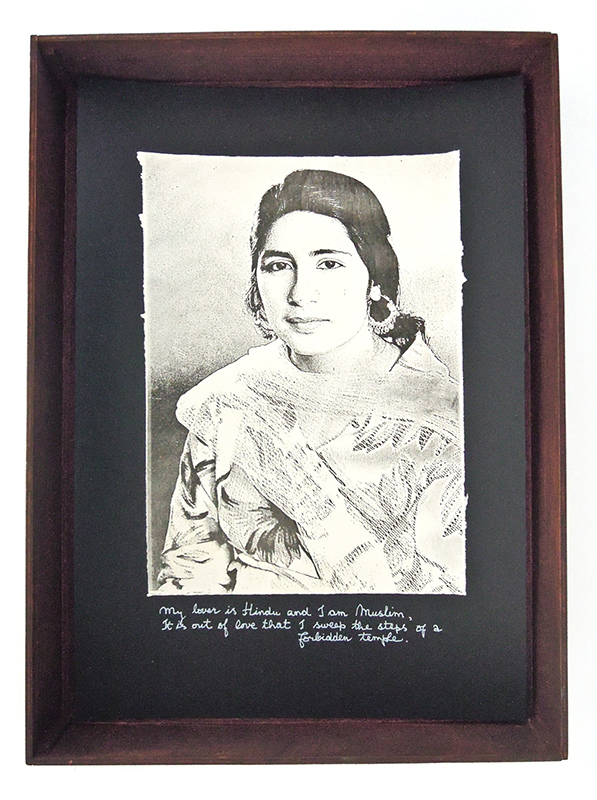 My lover is Hindu and I am Muslim,
It is out of love that I sweep the steps of a
forbidden temple.